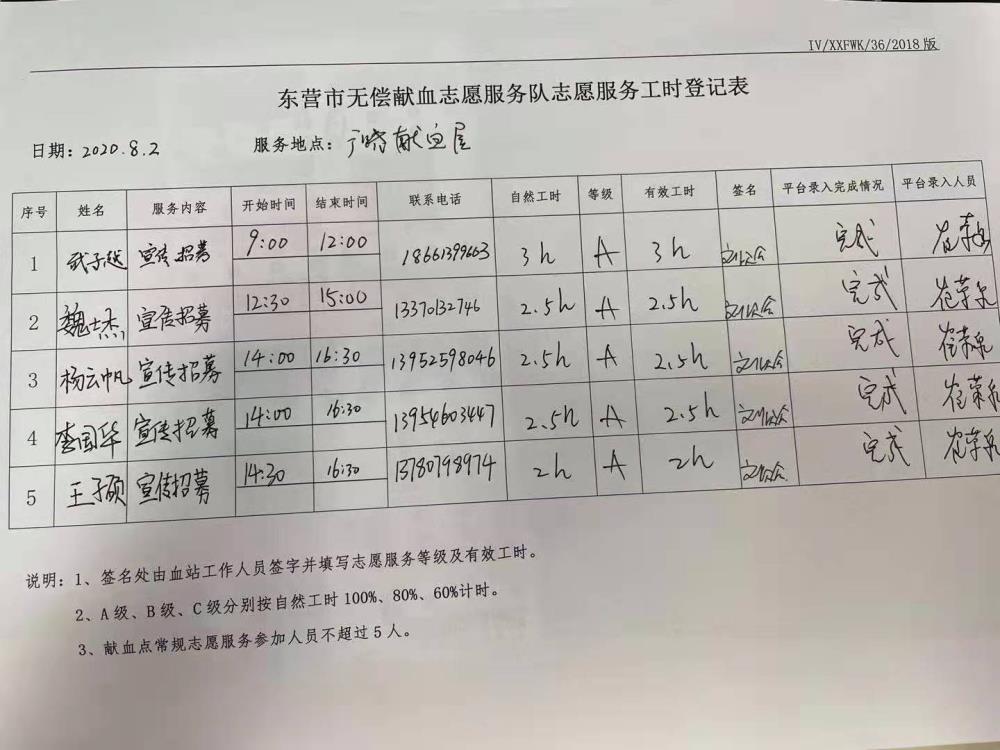 IV/XXFWK/36/2018版
东营市无偿献血志愿服务队志愿服务工时登记表
日期：2020.8.2 服务地点： 献血屋
序号 姓名 服务内容 开始时间 结束时间 联系电话 自然工时 等级 有效工时 签名 平台录入完成情况 平台录入人员
1 武子越 宣传招募 9:00 12:00 18661399603 3h A 3h 完成 崔荣泉
2 魏士杰 宣传招募 12:30 15:00 13370132746 2.5h A 2.5h 完成 崔荣泉
3 杨云帆 宣传招募 14:00 16:30 13952598046 2.5h A 2.5h 完成 崔荣泉
4 李国华 宣传招募 14:00 16:30 13954603447 2.5h A 2.5h 完成 崔荣泉
5 王子硕 宣传招募 14:30 16:30 13780798974 2h A 2h 完成 崔荣泉
说明：1、签名处由血站工作人员签字并填写志愿服务等级及有效工时。
2、A级、B级、C级分别按自然工时100%、80%、60%计时。
3、献血点常规志愿服务参加人员不超过5人。